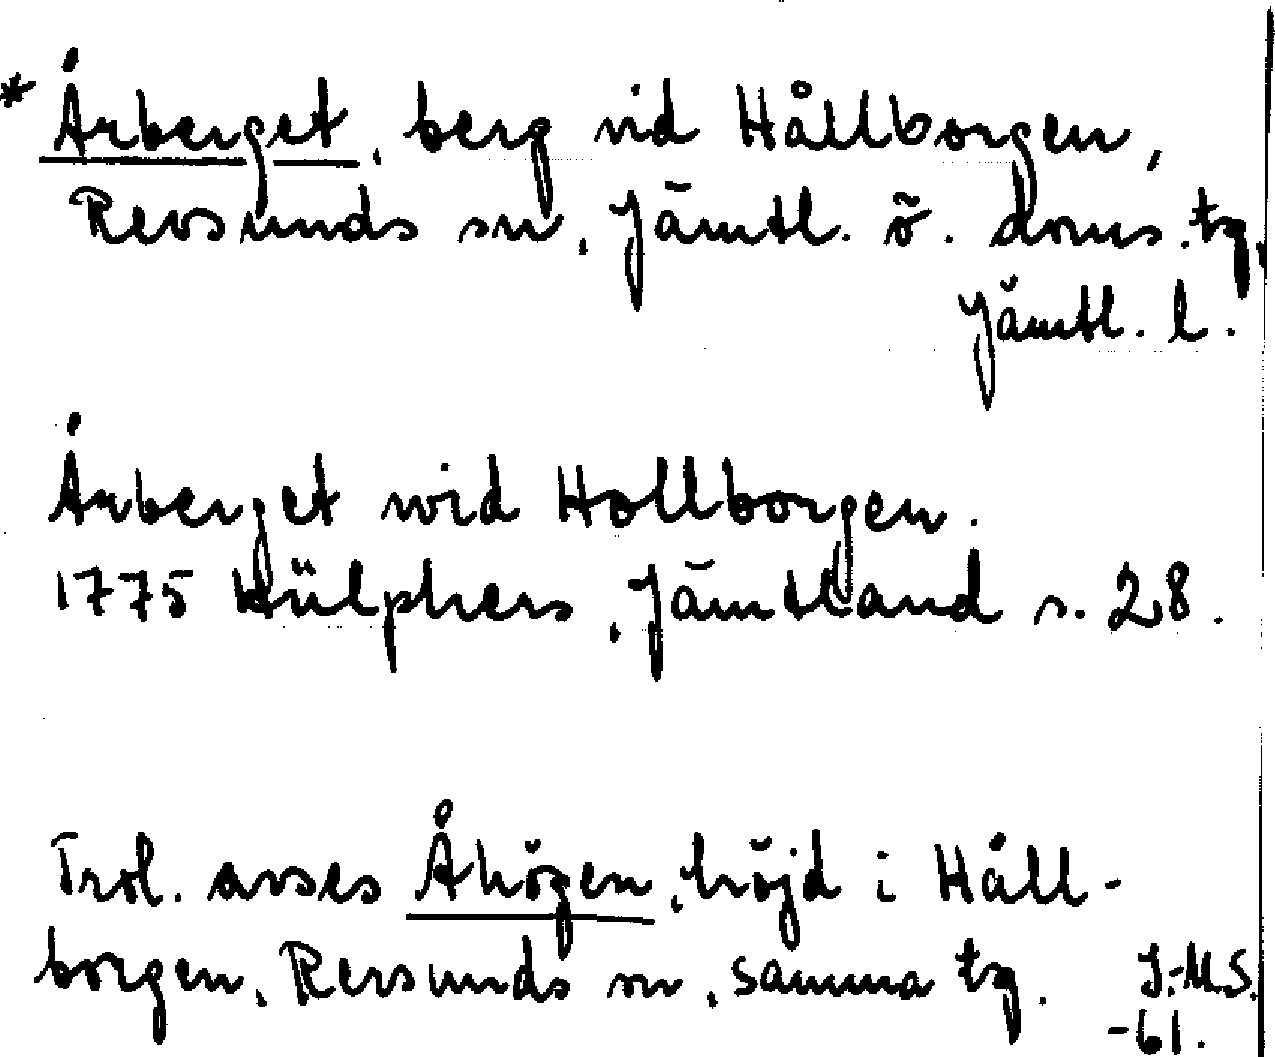 * Årberget, berg vid Hållborgen,
Revsunds sn, Jämtl. ö. doms. tg,
Jämtl. l.
Årberget wid Hollborgen.
1775 Hülphers, Jämtland s. 28.
Trol. avses Åhögen, höjd i Håll-
borgen, Revsunds sn, samma tg.
J.-M.S.
-61.